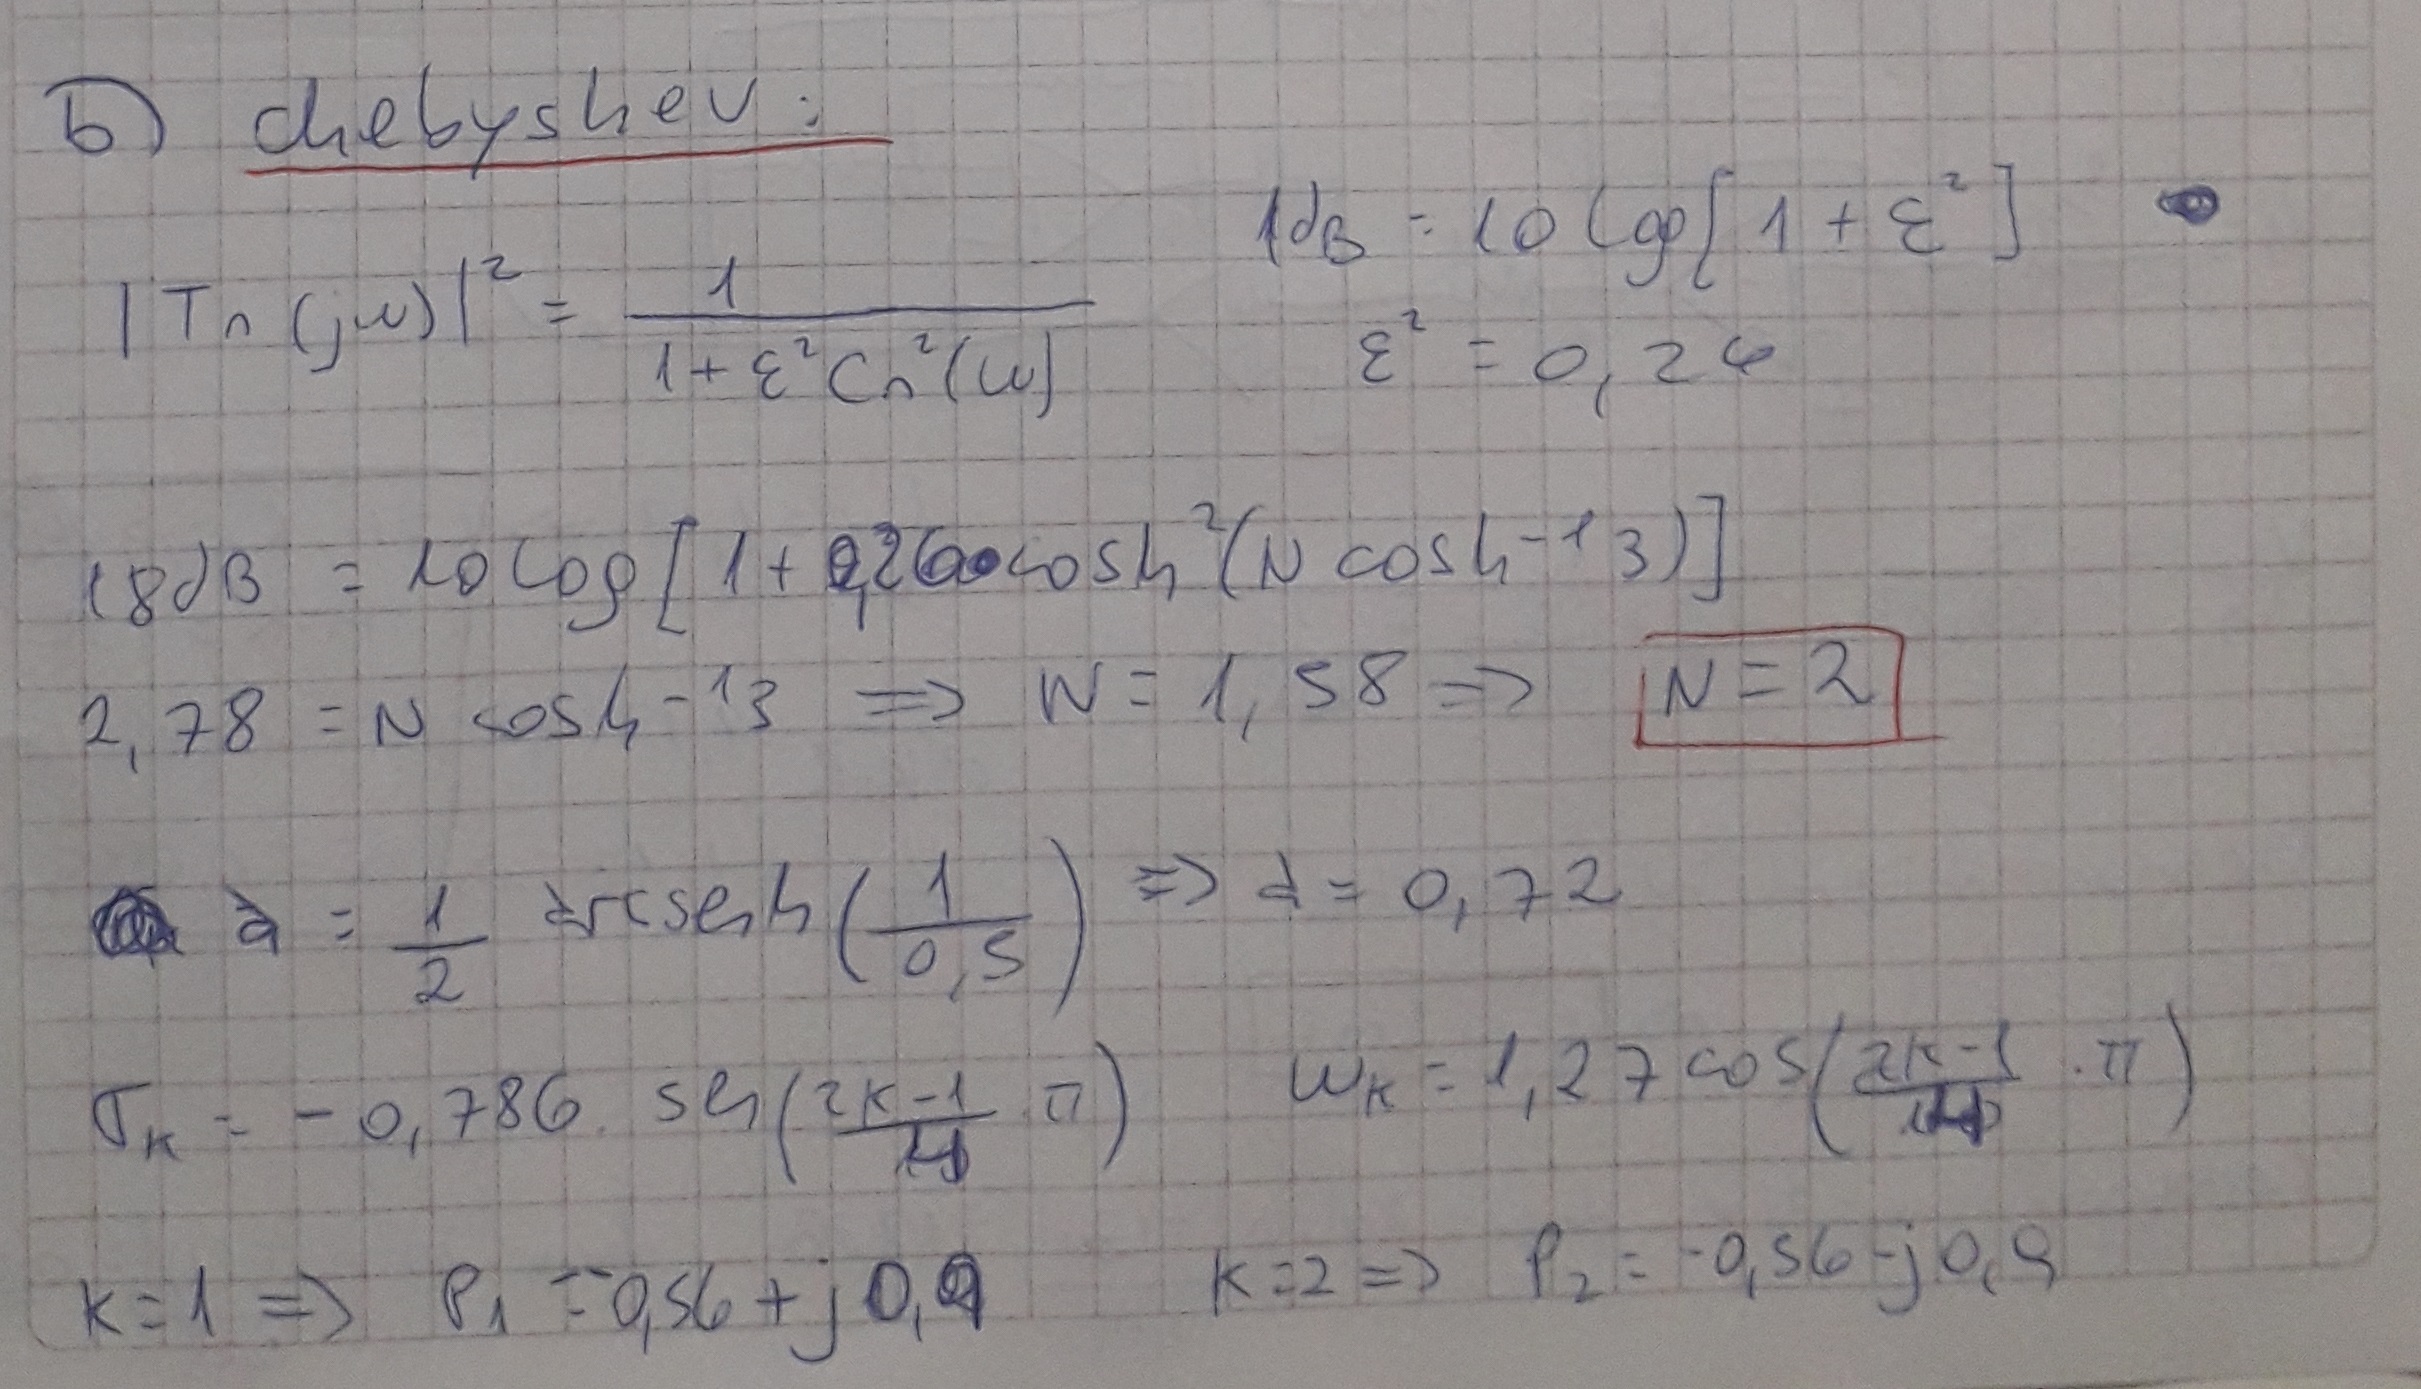 b) Chebyshev:
1dB = 10 log[1 + ε²]
|Tn(jω)|² = 1 / (1 + ε²Cn²(ω))
ε² = 0,26
18dB = 10 log[1 + 0,26 cosh²(N cosh⁻¹3)]
2,78 = N cosh⁻¹3 => N = 1,58 => N = 2
a = 1/2 arcsenh(1/0,5) => a = 0,72
σk = -0,786 . sen(2k-1/4 . π) ωk = 1,27 cos(2k-1/4 . π)
k=1 => P1 = -0,56 + j0,9 k=2 => P2 = -0,56 - j0,9